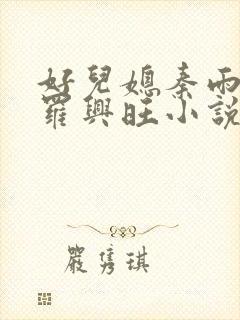 好兒媳秦雨
羅興旺小說
嚴隽琪